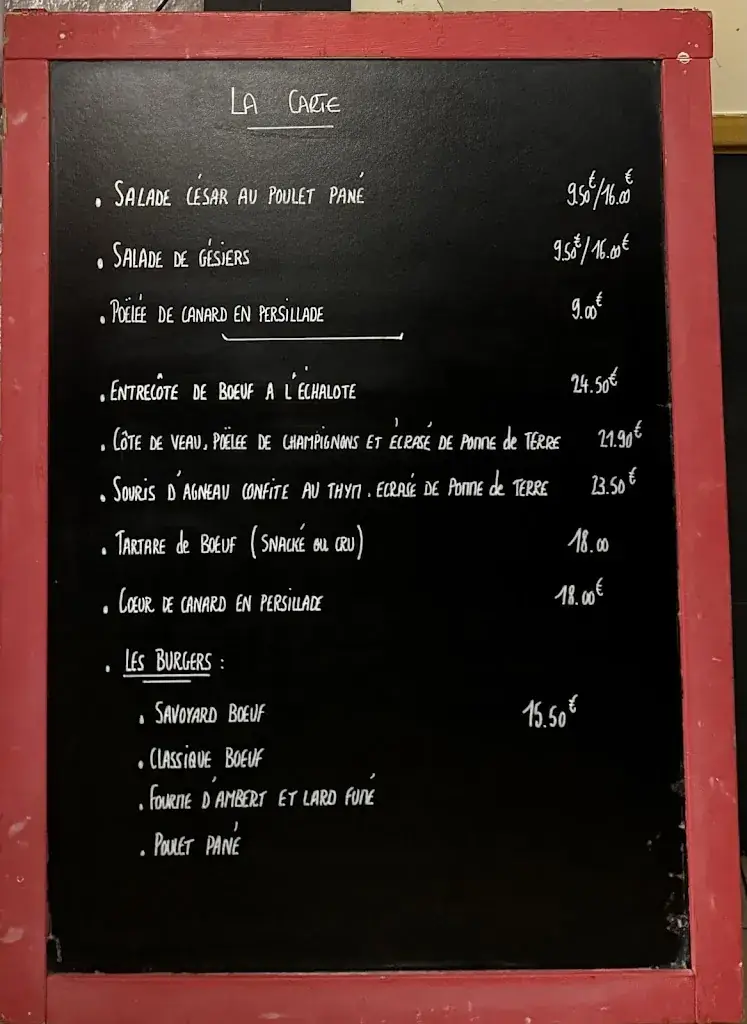 LA CARTE
. SALADE CÉSAR AU POULET PANÉ 9.50€/16.00€
. SALADE DE GÉSIERS 9.50€/16.00€
. POËLÉE DE CANARD EN PERSILLADE 9.00€
. ENTRECÔTE DE BOEUF A L'ÉCHALOTE 24.50€
. CÔTE DE VEAU, POËLEE DE CHAMPIGNONS ET ÉCRASÉ DE POMME de TERRE 21.90€
. SOURIS D'AGNEAU CONFITE AU THYM. ECRASÉ DE POMME de TERRE 23.50€
. TARTARE de BOEUF (SNACKÉ OU CRU) 18.00
. COEUR DE CANARD EN PERSILLADE 18.00€
. LES BURGERS :
. SAVOYARD BOEUF 15.50€
. CLASSIQUE BOEUF
. FOURME D'AMBERT ET LARD FUMÉ
. POULET PANÉ